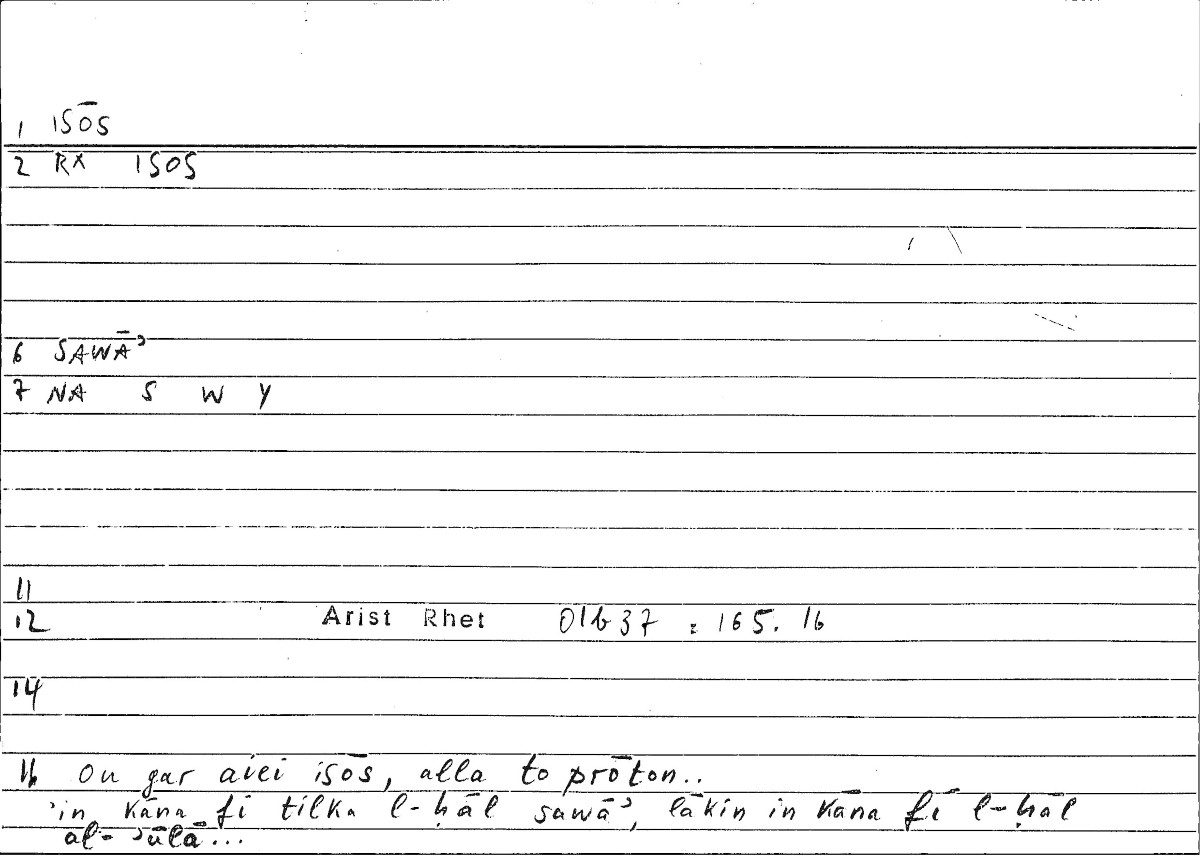 1 ISŌS
2 RX ISOS
6 SAWĀʾ
7 NA S W Y
11
12 Arist Rhet 01b37 : 165. 16
14
16 Ou gar aiei isōs, alla to prōton..
ʾin kāna fī tilka l-ḥāl sawāʾ, lākin in kāna fī l-ḥāl
al-ʾūlā...